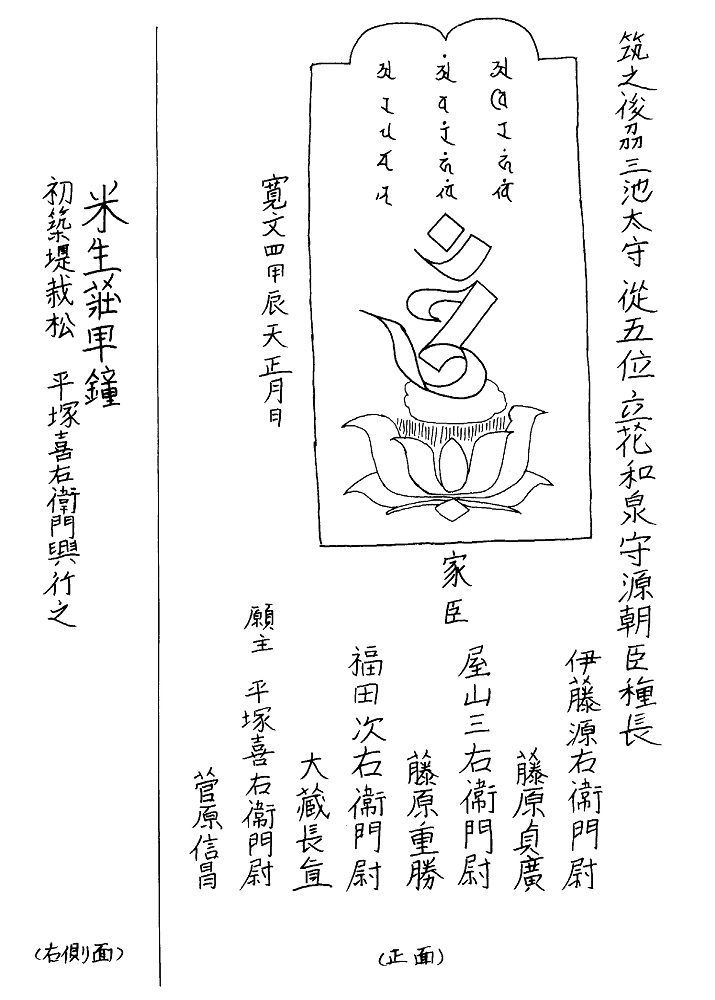 筑之後刕三池太守 從五位 立花和泉守源朝臣種長
寛文四甲辰天正月日
家臣
伊藤源右衛門尉
藤原貞廣
屋山三右衛門尉
藤原重勝
福田次右衛門尉
大藏長宣
願主 平塚喜右衛門尉
菅原信昌
(正面)
米生莊甲鐘
初築堤栽松 平塚喜右衛門興行之
(右側面)